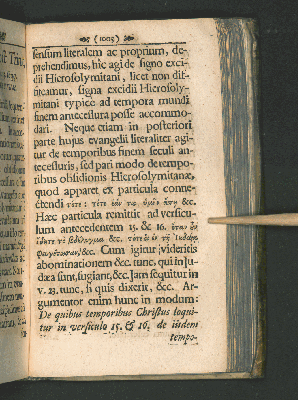 (1005)
sensum literalem ac proprium, de-
prehendimus, hic agi de signo exci-
dii Hierosolymitani, licet non dif-
fiteamur, signa excidii Hierosoly-
mitani typicè ad tempora mundi
finem antecessura posse accommo-
dari. Neque etiam in posteriori
parte hujus evangelii literaliter agi-
tur de temporibus finem seculi an-
tecessuris, sed pari modo de tempo-
ribus obsidionis Hierosolymitanæ,
quod apparet ex particula conne-
ctendi τότε: τότε ἐάν τις ὑμῖν εἴπῃ &c.
Hæc particula remittit ad versicu-
lum antecedentem 15. & 16. ὅταν ἂν
ἴδητε τὸ βδέλυγμα &c. τότε οἱ ἐν τῇ Ἰουδαίᾳ
φευγέτωσαν, &c. Cum igitur videritis
abominationem &c. tunc, qui in Ju-
dæa sunt, fugiant, &c. Jam sequitur in
v. 23. tunc, si quis dixerit, &c. Ar-
gumentor enim hunc in modum:
De quibus temporibus Christus loqui-
tur in versiculo 15. & 16. de iisdem
tempo-